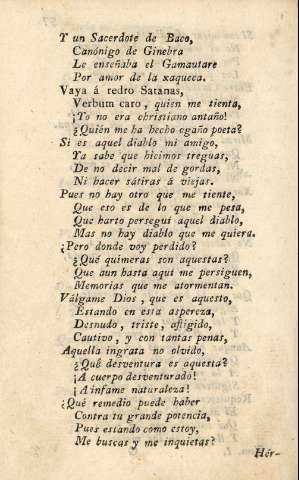 Y un Sacerdote de Baco,
Canónigo de Ginebra
Le enseñaba el Gamautare
Por amor de la xaqueca.
Vaya á redro Satanas,
Verbum caro, quien me tienta,
¡Yo no era christiano antaño!
¿Quién me ha hecho ogaño poeta?
Si es aquel diablo mi amigo,
Ya sabe que hicimos treguas,
De no decir mal de gordas,
Ni hacer sátiras á viejas.
Pues no hay otro que me tiente,
Que eso es de lo que me pesa,
Que harto perseguí aquel diablo,
Mas no hay diablo que me quiera.
¿Pero donde voy perdido?
¿Qué quimeras son aquestas?
Que aun hasta aquí me persiguen,
Memorias que me atormentan.
Válgame Dios, que es aquesto,
Estando en esta aspereza,
Desnudo, triste, afligido,
Cautivo, y con tantas penas,
Aquella ingrata no olvido,
¿Qué desventura es aquesta?
¡A cuerpo desventurado!
¡A infame naturaleza!
¿Qué remedio puede haber
Contra tu grande potencia,
Pues estando como estoy,
Me buscas y me inquietas?
Hér-